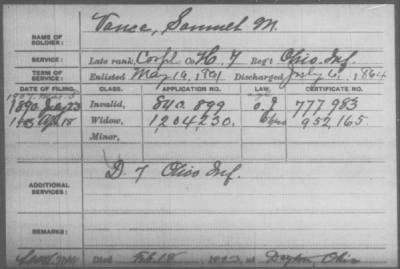 NAME OF SOLDIER: Vance, Samuel M.
SERVICE: Late rank, Corpl Co. H, 7 Reg't Ohio Inf.
TERM OF SERVICE: Enlisted May 1861 Discharged July 6, 1864
DATE OF FILING. CLASS. APPLICATION NO. LAW. CERTIFICATE NO.
1890 July 23 Invalid, 840.899 777983
Apr 18 Widow, 1,204,230. 952,165.
Minor,
ADDITIONAL SERVICES: D 7 Ohio Inf.
REMARKS:
Died Feb 18 at Dayton, Ohio